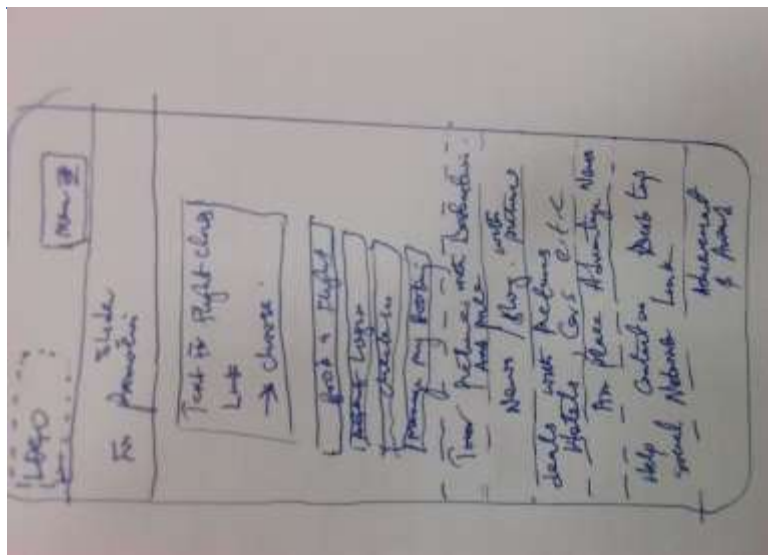 LOGO
Menu
Slide
For Promotion
Text for Flight class
List
→ choose.
Book a Flight
Login
Check in
Manage my Book.
Tour Pictures with Destination
and price
News / Blog. with picture
deals with pictures
Hotels, Cars etc
Advantage News
Help Contact us Desk top
Social Network Link
Advancement
& Award